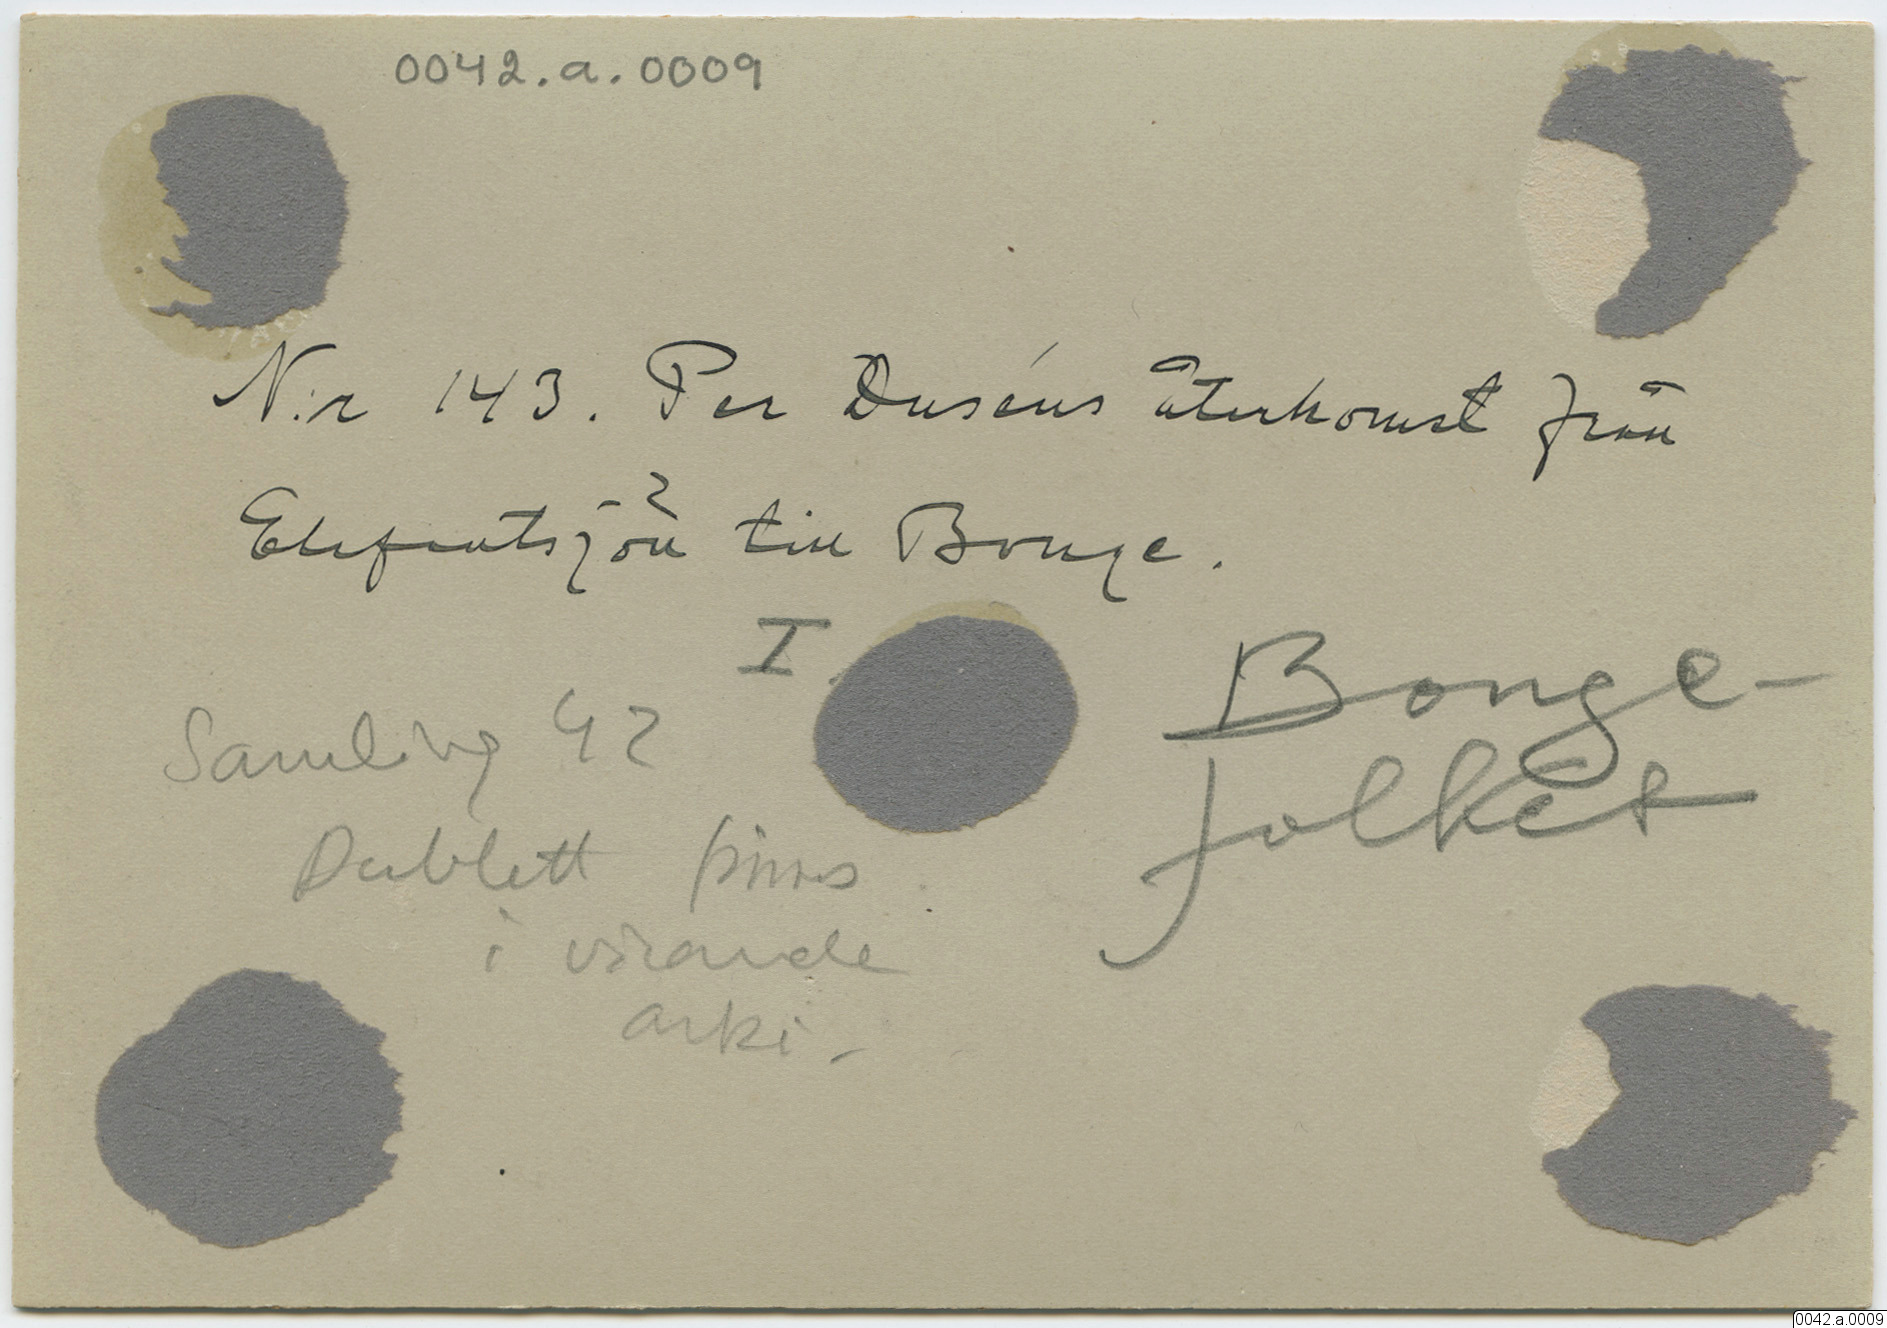 0042.a.0009
N:r 143. Per Duséns återkomst från
Elefantsjön till Bonge.
I.
Bonge-
folket
Samling 42
Dublett finns
i
arki-
0042.a.0009